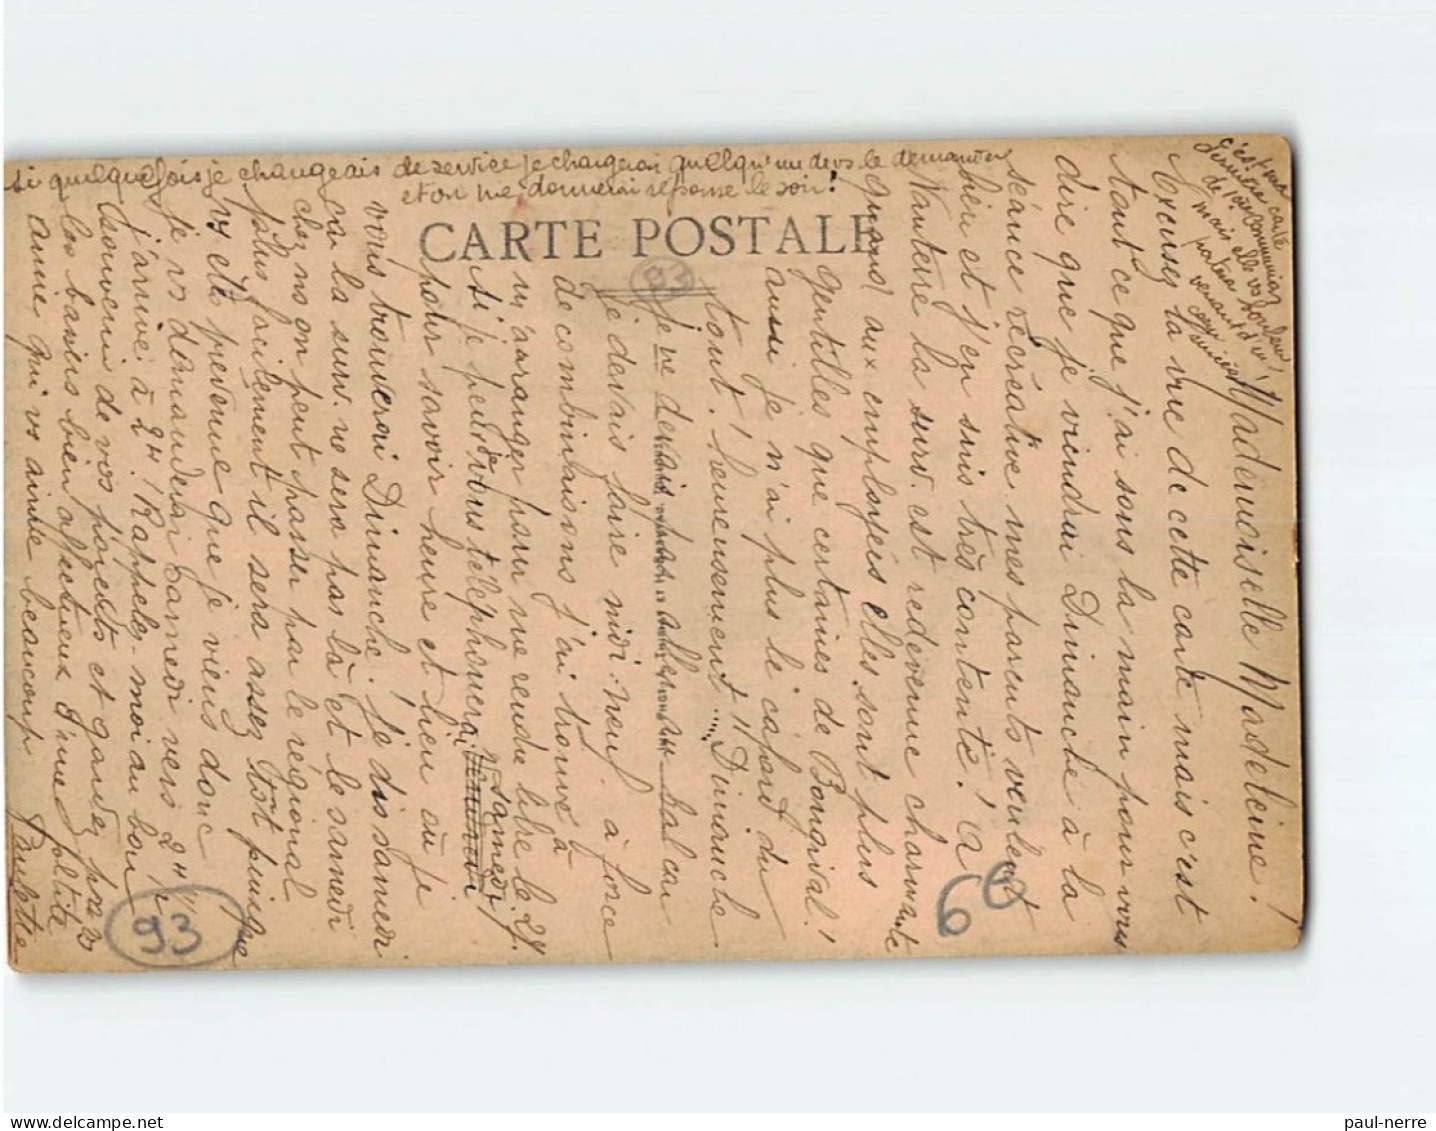 Mademoiselle Madeleine !
Excusez la vue de cette carte mais c'est
tout ce que j'ai sous la main pour vous
dire que je viendrai Dimanche à la
séance récréative mes parents veulent
bien et j'en suis très contente ! A
Nanterre la surv. est redevenue charmante
quand aux employées elles sont plus
gentilles que certaines de Bougival !
aussi je n'ai plus le cafard du
tout ! heureusement !! Dimanche
je ne devais pas aller bal car
je devais faire midi-neuf. à force
de combinaisons j'ai trouvé à
m'arranger pour me rendre libre le 24.
si je peux vous téléphonerai samedi
pour savoir heure et lieu où je
vous trouverai Dimanche. je dis samedi
car la surv. ne sera pas là et le samedi
chez nous on peut passer par le régional
plus facilement il sera assez tôt puisque
ns êtes prévenue que je viens donc
je vs demanderai samedi vers 2H
j'arrive à 2H ! Rappelez-moi au bon
souvenir de vos parents et gardez pour vs
les baisers bien affectueux d'une petite
amie qui vs aime beaucoup
Paulette
si quelquefois je changeais de service je chargerai quelqu'un de vs le demander
et on me donnerai réponse le soir !
c'est ma
dernière carte
de
mais elle vs
portera
venant d'
ces
CARTE POSTALE
93
93
6e
paul-nerre